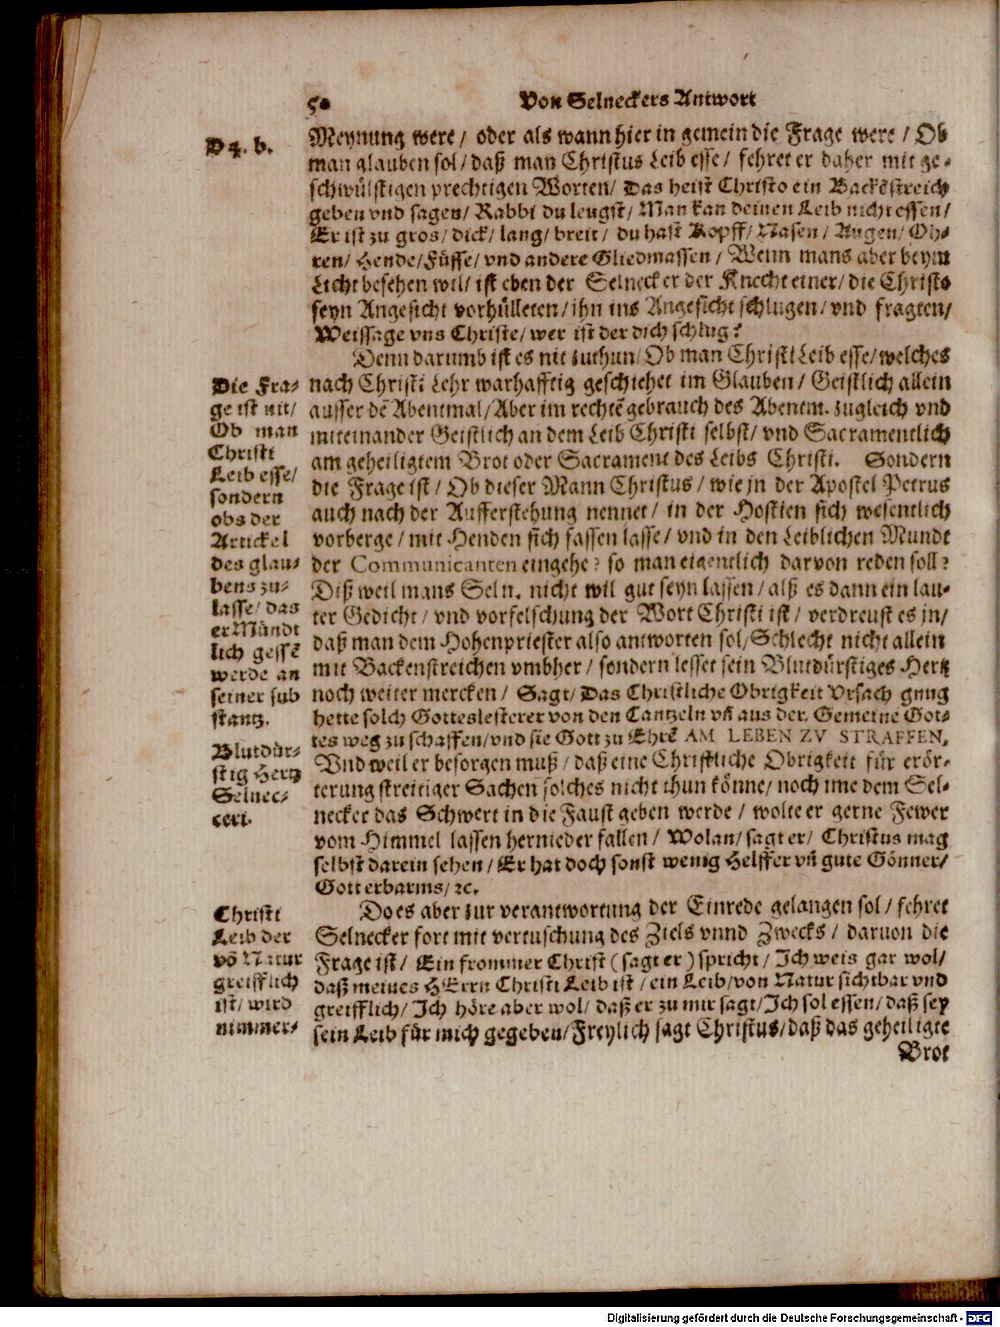 50 Von Selneckers Antwort
D4. b.
Meynung were / oder als wann hier in gemein die Frage were / Ob
man glauben sol / daß man Christus Leib esse / fehret er daher mit ge-
schwülstigen prechtigen Worten / Das heist Christo ein Backēstreich
geben vnd sagen / Rabbi du leugst / Man kan deinen Leib nicht essen /
Er ist zu gros / dick / lang / breit / du hast Kopff / Nasen / Augen / Oh-
ren / Hende / Füsse / vnd andere Gliedmassen / Wenn mans aber beym
Licht besehen wil / ist eben der Selnecker der Knecht einer / die Christo
seyn Angesicht vorhülleten / ihn ins Angesicht schlugen / vnd fragten /
Weissage vns Christe / wer ist der dich schlug?
Denn darumb ist es nit zuthun / Ob man Christi Leib esse / welches
nach Christi Lehr warhafftig geschiehet im Glauben / Geistlich allein
ausser dē Abentmal / Aber im rechtē gebrauch des Abentm. zugleich vnd
miteinander Geistlich an dem Leib Christi selbst / vnd Sacramentlich
am geheiligtem Brot oder Sacrament des Leibs Christi. Sondern
die Frage ist / Ob dieser Mann Christus / wie jn der Apostel Petrus
auch nach der Aufferstehung nennet / in der Hostien sich wesentlich
vorberge / mit Henden sich fassen lasse / vnd in den Leiblichen Mundt
der Communicanten eingehe? so man eigentlich darvon reden soll?
Diß weil mans Seln. nicht wil gut seyn lassen / alß es dann ein lau-
ter Gedicht / vnd vorfelschung der Wort Christi ist / verdreust es jn /
daß man dem Hohenpriester also antworten sol / Schlecht nicht allein
mit Backenstreichen vmbher / sondern lesset sein Blutdürstiges Hertz
noch weiter mercken / Sagt / Das Christliche Obrigkeit Vrsach gnug
hette solch Gotteslesterer von den Cantzeln vñ aus der Gemeine Got-
tes weg zu schaffen / vnd sie Gott zu Ehrē AM LEBEN ZV STRAFFEN,
Vnd weil er besorgen muß / daß eine Christliche Obrigkeit für erör-
terung streitiger Sachen solches nicht thun könne / noch ime dem Sel-
necker das Schwert in die Faust geben werde / wolte er gerne Fewer
vom Himmel lassen hernieder fallen / Wolan / sagt er / Christus mag
selbst darein sehen / Er hat doch sonst wenig Helffer vñ gute Gönner /
Gott erbarms / ꝛc.
Do es aber zur verantwortung der Einrede gelangen sol / fehret
Selnecker fort mit vertuschung des Ziels vnnd Zwecks / daruon die
Frage ist / Ein frommer Christ (sagt er) spricht / Ich weis gar wol /
daß meines HErrn Christi Leib ist / ein Leib / von Natur sichtbar vnd
greifflich / Ich höre aber wol / daß er zu mir sagt / Ich sol essen / daß sey
sein Leib für mich gegeben / Freylich sagt Christus / daß das geheiligte
Brot
Die Fra-
ge ist nit /
Ob man
Christi
Leib esse /
sondern
obs der
Artickel
des glau-
bens zu-
lasse / das
er Mündt
lich gessē
werde an
seiner sub
stantz.
Blutdür-
stig Hertz
Selnec-
ceri.
Christi
Leib der
vō Natur
greifflich
ist / wird
nimmer-